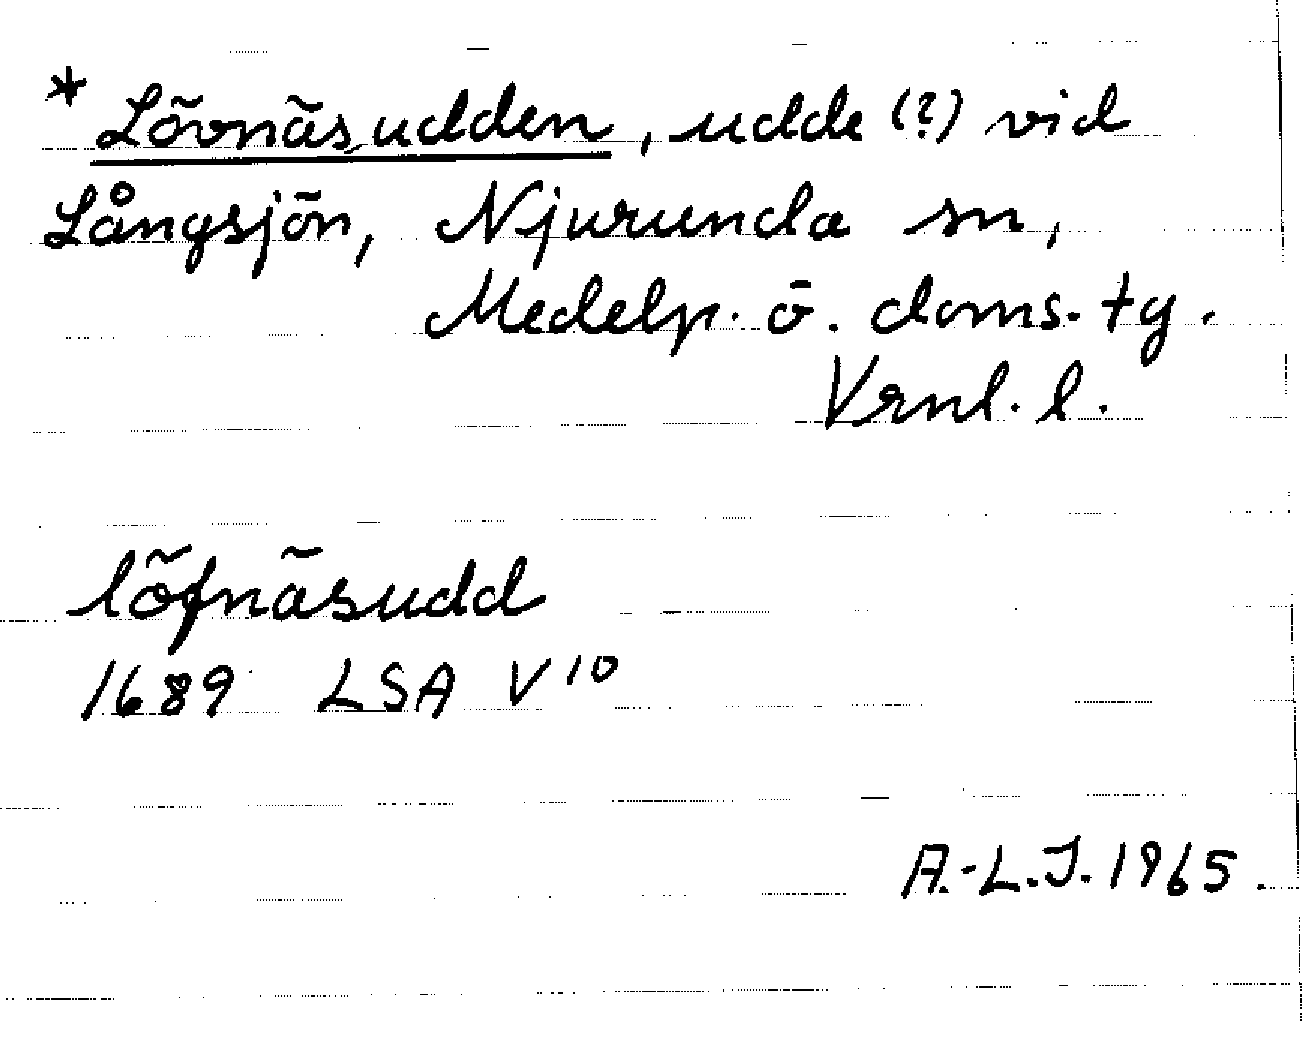 * Lövnäsudden, udde (?) vid
Långsjön, Njurunda sn,
Medelp. ö. doms. tg.
Vrnl. l.
löfnäsudd
1689 LSA V 10
A.-L.J. 1965.